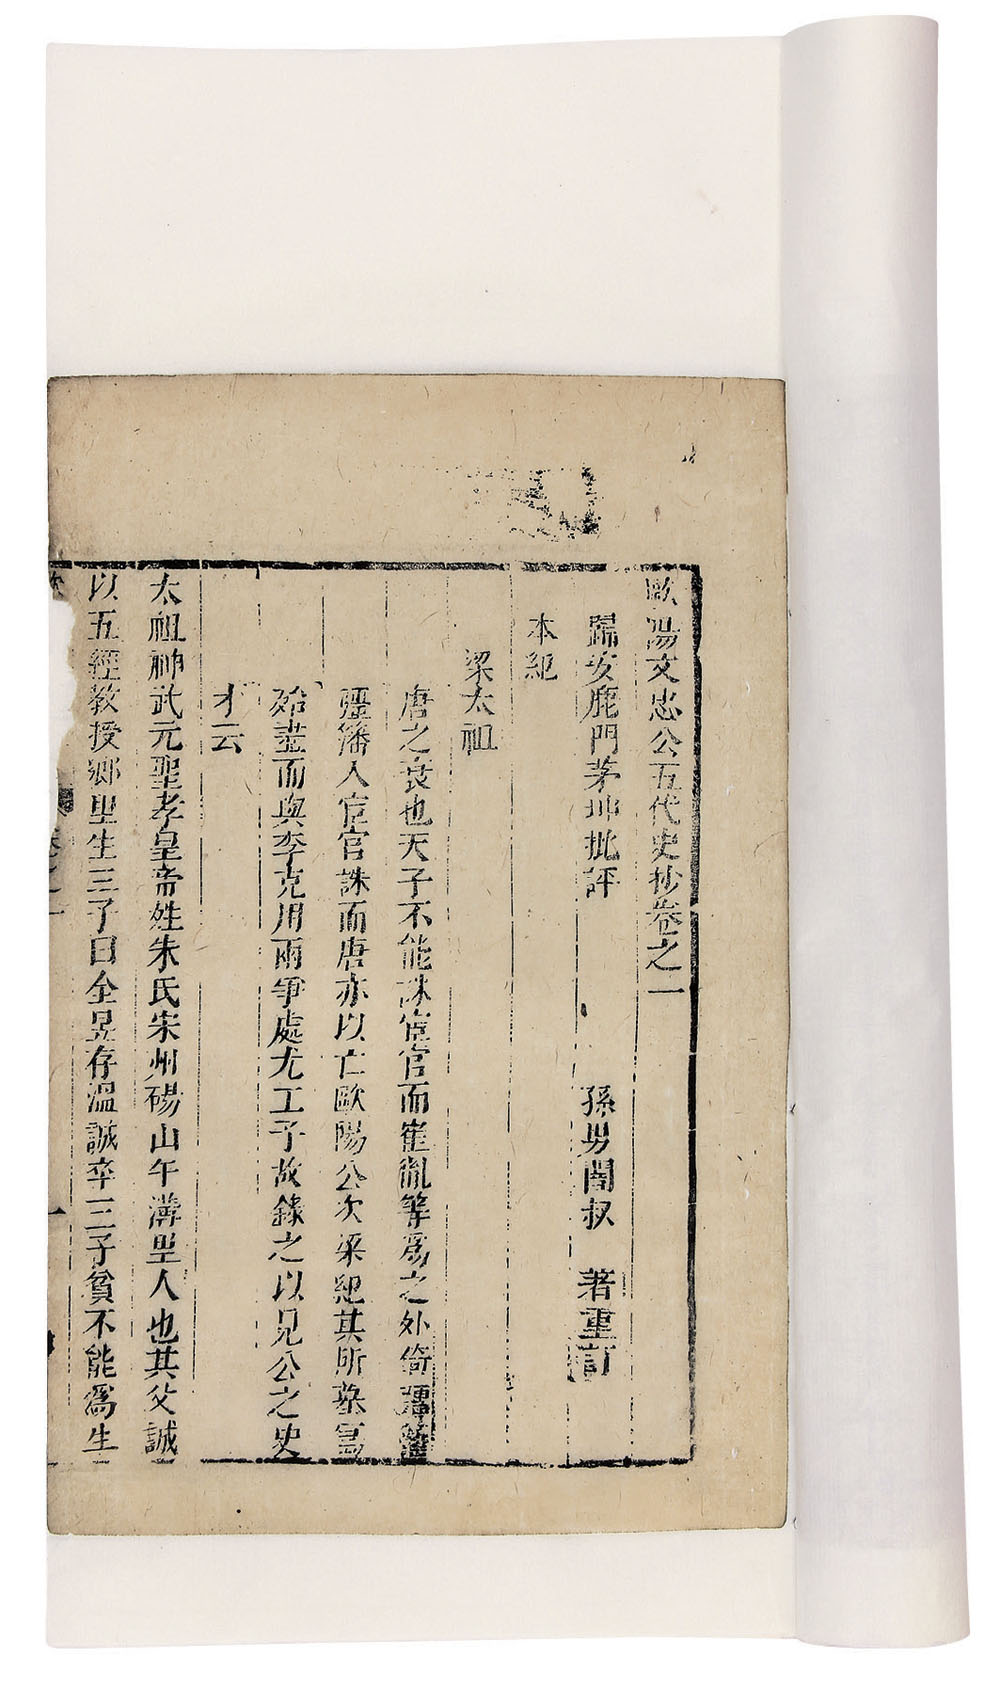 歐陽文忠公五代史抄卷之一
歸安鹿門茅坤批評 孫男闇叔 著重訂
本紀
梁太祖
唐之衰也天子不能誅宦官而崔胤等爲之外倚疆藩
疆藩入宦官誅而唐亦以亡歐陽公次梁紀其所纂
殆盡而與李克用兩爭處尤工予故錄之以見公之史
才云
太祖神武元聖孝皇帝姓朱氏宋州碭山午溝里人也其父誠
以五經教授鄉里生三子曰全昱存溫誠卒三子貧不能爲生
卷之一
一